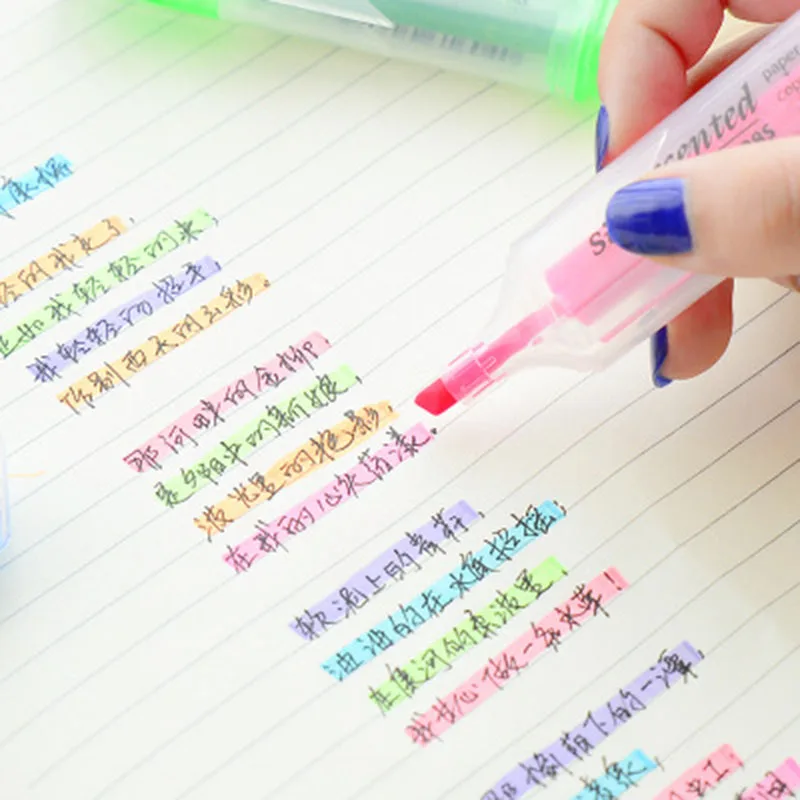 康桥
轻的我走了，
正如我轻轻的来；
我轻轻的招手，
作别西天的云彩。
那河畔的金柳，
是夕阳中的新娘；
波光里的艳影，
在我的心头荡漾。
软泥上的青荇，
油油的在水底招摇；
在康河的柔波里，
我甘心做一条水草！
那榆荫下的一潭，
清泉，
虹；
scented
paper